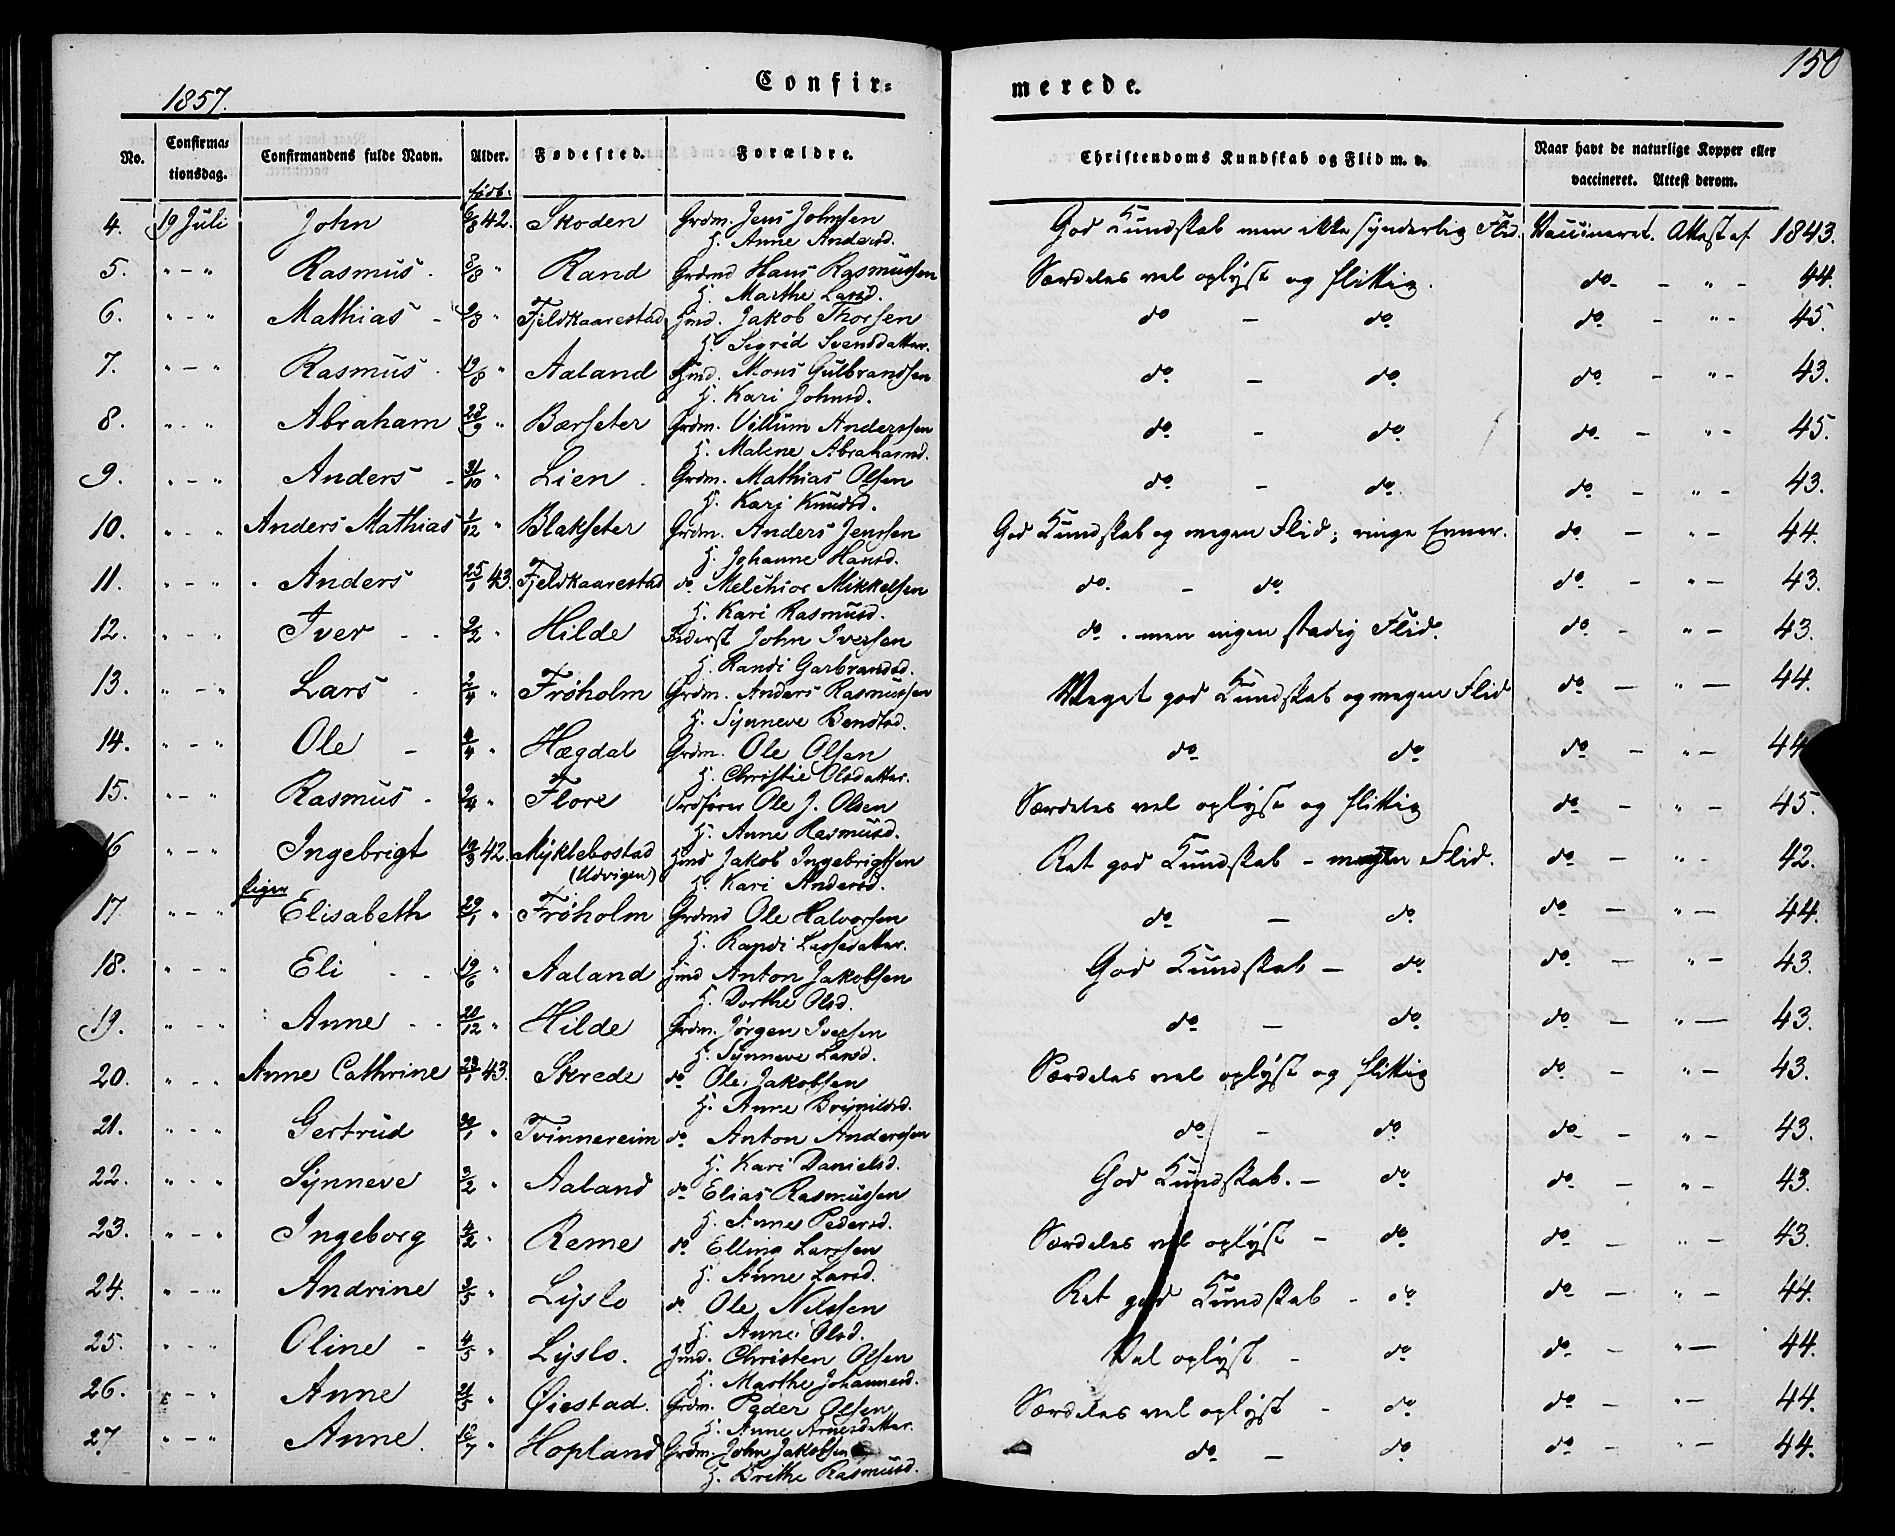 150
1857.
Confir=
merede.
No. Confirmationsdag. Confirmandens fulde Navn. Alder. Fødested. Forældre. Christendoms Kundskab og Flid m. v. Naar havt de naturlige Kopper eller vaccineret. Attest derom.
født:
4. 19 Juli John 6/8 42. Skoden Grdm. Jens Johnsen God Kundskab men ikke synderlig Flid. Vaccineret. Attest af 1843.
H. Anne Andersd.
5. " - " Rasmus. 8/8 " Rand Grdmd Hans Rasmussen Særdeles vel oplyst og flittig. do - " - 44.
H. Marthe Larsd.
6. " - " Mathias - 9/8 " Fjeldkaarestad Hmd. Jakob Thorsen do - do do - " - 45.
H. Sigrid Svendsdatter.
7. " - " Rasmus. 19/8 " Aaland Hmd. Mons Gulbrandsen do - do do - " - 43.
H. Kari Johnsd.
8. " - " Abraham 28/9 " Bærseter Grdm. Villum Anderssen do - do do - " - 45.
H. Malene Abrahamsd.
9. " - " Anders - 31/10 " Lien. Grdm. Mathias Olsen do - do. do - " - 43.
H. Kari Knudsd.
10. " - " Anders Mathias 1/12 " Blakseter Grdm. Anders Jenssen God Kundskab og megen Flid; ringe Evner. do - " - 44.
H. Johanne Hansd.
11. " - " Anders 25/1 43. Fjeldkaarestad do Melchior Mikkelsen do. - do do - " - 43.
H. Kari Rasmusd.
12. " - " Iver - - 9/2 " Hilde Inderst John Iversen do. men ingen stadig Flid. do - " - 43.
H. Randi Garbrandsd.
13. " - " Lars - 2/4 " Frøholm Grdm. Anders Rasmussen Meget god Kundskab og megen Flid do - " - 44.
H. Synneve Bendtsd.
14. " - " Ole - 4/4 " Hægdal Grdm. Ole Olsen do do do - " - 44
H. Christie Olsdatter.
15. " - " Rasmus - 9/4 " Flore Ole J. Olsen Særdeles vel oplyst og flittig do - " - 45.
H. Anne Rasmusd.
16 " - " Ingebrigt 19/3 42. Myklebostad Hmd Jakob Ingebrigtsen Ret god Kundskab - megen Flid. do - " - 42.
(Udvigen) H. Kari Andersd.
Piger
17 " - " Elisabeth 29/1 " Frøholm Grdmd Ole Halvorsen do - do do - " - 44.
H. Randi Lassedatter.
18. " - " Eli - - 19/6 " Aaland Hmd Anton Jakobsen God Kundskab - do do - " - 43.
H. Dorthe Olsd.
19. " - " Anne - - 20/12 " Hilde Grdm. Jørgen Iversen do - do do - " - 43.
H. Synneve Larsd.
20. " - " Anne Cathrine 23/1 43. Skrede do Ole Jakobsen Særdeles vel oplyst og flittig do - " - 43.
H. Anne Brynildsd.
21. " - " Gertrud 30/1 " Tvinnereim do Anton Andersen do - do do - " - 43.
H. Kari Danielsd.
22. " - " Synneve 3/2 " Aaland do Elias Rasmussen God Kundskab. - do do - " - 43.
H. Anne Pedersd.
23. " - " Ingeborg 4/2 " Reme do Elling Larssen Særdeles vel oplyst - do do - " - 43.
H. Anne Larsd.
24. " - " Andrine 2/5 " Lyslo do Ole Nilssen Ret god Kundskab - do do - " - 44.
H. Anne Olsd.
25. " - " Oline - 4/5 " Lyslo. Hmd. Christen Olsen Vel oplyst - do do - " - 44.
H. Marthe Johannesd.
26. " - " Anne 21/5 " Øiestad. Grdm. Peder Olsen Særdeles vel oplyst - do do - " - 44.
H. Anne Arnesdatter.
27. " - " Anne. 12/7 " Hopland Grdm. John Jakobsen do - do do - " - 44.
H. Brithe Rasmusd.